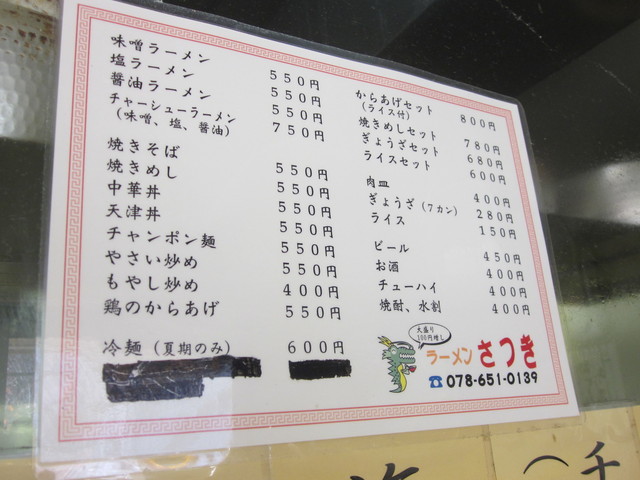 味噌ラーメン 550円
塩ラーメン 550円
醤油ラーメン 550円
チャーシューラーメン 750円
（味噌、塩、醤油）
焼きそば 550円
焼きめし 550円
中華丼 550円
天津丼 550円
チャンポン麺 550円
やさい炒め 550円
もやし炒め 400円
鶏のからあげ 550円
冷麺（夏期のみ） 600円
からあげセット 800円
（ライス付）
焼きめしセット 780円
ぎょうざセット 680円
ライスセット 600円
肉皿 400円
ぎょうざ（7カン） 280円
ライス 150円
ビール 450円
お酒 400円
チューハイ 400円
焼酎、水割 400円
大盛り
100円増し
ラーメン さつき
☎078-651-0139
（チ